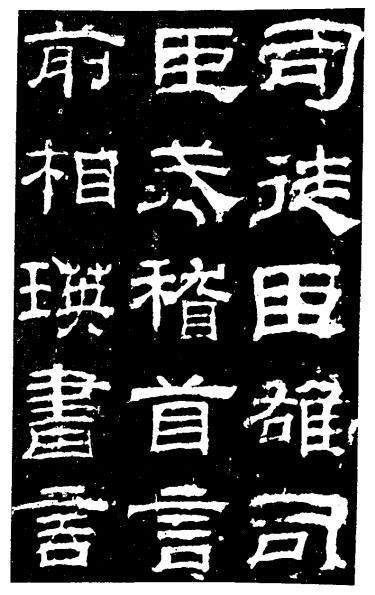 司徒臣雄司
臣戒稽首言
前相瑛書言